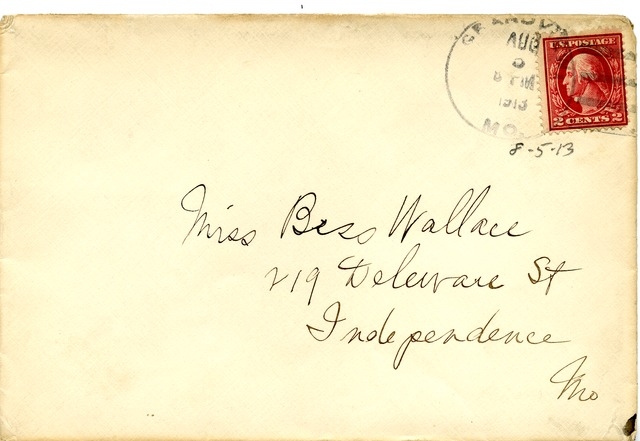 GRANDVI
AUG
5
PM
1913
MO.
U.S. POSTAGE
2 CENTS 2
8-5-13
Miss Bess Wallace
219 Deleware St
Independence
Mo